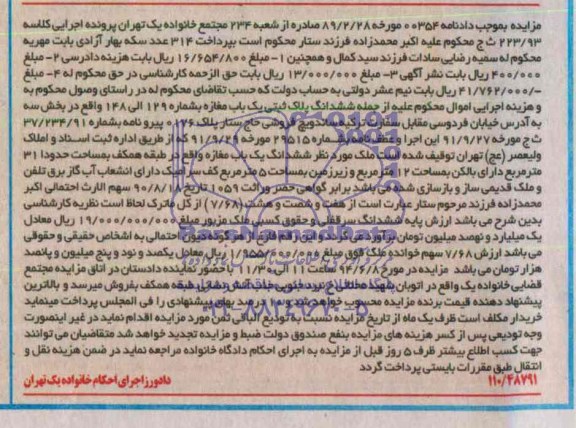 مزایده بموجب دادنامه ۰۰۳۵۴ مورخه ۸۹/۲/۲۸ صادره از شعبه ۲۳۴ مجتمع خانواده یک تهران پرونده اجرایی کلاسه
۲۲۳/۹۳ ث ج محکوم علیه اکبر محمدزاده فرزند ستار محکوم است بپرداخت ۳۱۴ عدد سکه بهار آزادی بابت مهریه
محکوم له سمیه رضایی سادات فرزند سید کمال و همچنین ۱- مبلغ ۱۶/۶۵۴/۸۰۰ ریال بابت هزینه دادرسی ۲- مبلغ
۴۰۰/۰۰۰ ریال بابت نشر آگهی ۳- مبلغ ۱۳/۰۰۰/۰۰۰ ریال بابت حق الزحمه کارشناسی در حق محکوم له ۴- مبلغ
۴۱/۷۶۲/۰۰۰/- ریال بابت نیم عشر دولتی به حساب دولت که حسب تقاضای محکوم له در راستای وصول محکوم به
و هزینه اجرایی اموال محکوم علیه از جمله ششدانگ پلاک ثبتی یک باب مغازه بشماره ۱۲۹ الی ۱۴۸ واقع در بخش سه
به آدرس خیابان فردوسی مقابل سفارت ترکیه ساندویچ فروشی حاج ستار پلاک ۱۷۶ و پیرو نامه بشماره ۳۷/۲۳۴/۹۱
ث ج مورخه ۹۱/۹/۲۷ این اجرا و عطف نامه بشماره ۲۹۵۱۵ مورخه ۹۱/۹/۲۹ که از طریق اداره ثبت اسناد و املاک
ولیعصر (عج) تهران توقیف شده است ملک مورد نظر ششدانگ یک باب مغازه واقع در طبقه همکف بمساحت حدودا ۳۱
مترمربع دارای بالکن بمساحت ۱۲ مترمربع و زیرزمین بمساحت ۵ مترمربع کف سرامیک دارای انشعاب آب گاز برق تلفن
و ملک قدیمی ساز و بازسازی شده می باشد برابر گواهی حصر وراثت ۱۰۵۹ تاریخ ۹۰/۸/۱۰ سهم الارث احتمالی اکبر
محمدزاده فرزند مرحوم ستار عبارت است از هفت و شصت و هشتم (۷/۶۸) از کل ماترک لحاظ است نظریه کارشناسی
بدین شرح می باشد ارزش پایه ششدانگ سرقفلی و حقوق کسبی ملک مزبور مبلغ ۱۹/۰۰۰/۰۰۰/۰۰۰ ریال معادل
یک میلیارد و نهصد میلیون تومان برآورد می گردد و این رقم فارغ از هر گونه دیون احتمالی به اشخاص حقیقی و حقوقی
می باشد ارزش ۷/۶۸ سهم خوانده ملک فوق مبلغ ۱/۹۵۵/۰۰۰/۰۰۰ ریال معادل یکصد و نود و پنج میلیون و پانصد
هزار تومان می باشد مزایده در مورخ ۹۴/۶/۸ ساعت ۱۱ الی ۱۱/۳۰ با حضور نماینده دادستان در اتاق مزایده مجتمع
قضایی خانواده یک واقع در اتوبان شهید محلاتی نبرد جنوبی جنب آتش نشانی طبقه همکف بفروش میرسد و بالاترین
پیشنهاد دهنده قیمت برنده مزایده محسوب خواهد شد و ۱۰ درصد بهای پیشنهادی را فی المجلس پرداخت مینماید
خریدار مکلف است ظرف یک ماه از تاریخ مزایده نسبت به تودیع الباقی ثمن مورد مزایده اقدام نماید در غیر اینصورت
وجه تودیعی پس از کسر هزینه های مزایده بنفع صندوق دولت ضبط و مزایده تجدید خواهد شد متقاضیان می توانند
جهت کسب اطلاع بیشتر ظرف ۵ روز قبل از مزایده به اجرای احکام دادگاه خانواده مراجعه نماید در ضمن هزینه نقل و
انتقال طبق مقررات بایستی پرداخت گردد
۱۱۰/۴۸۷۹۱ دادورز اجرای احکام خانواده یک تهران